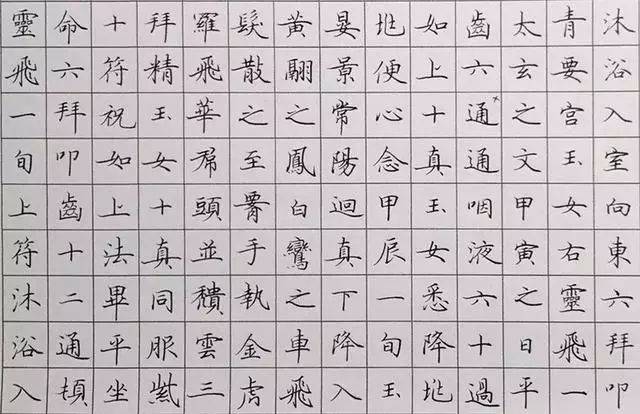 沐浴入室向東六拜叩
青要宫玉女右靈飛一
太玄之文甲寅之日平
齒六通通咽液六十過
如上十真玉女悉降地
地便心念甲辰一旬玉
晏景常陽迴真下降入
黃翮之鳳白鸞之車飛
髮散之至手執金虎
羅飛華帬頭並穨雲三
拜精玉女十真同服紫
十符祝如上法畢平坐
命六拜叩齒十二通頓
靈飛一旬上符沐浴入